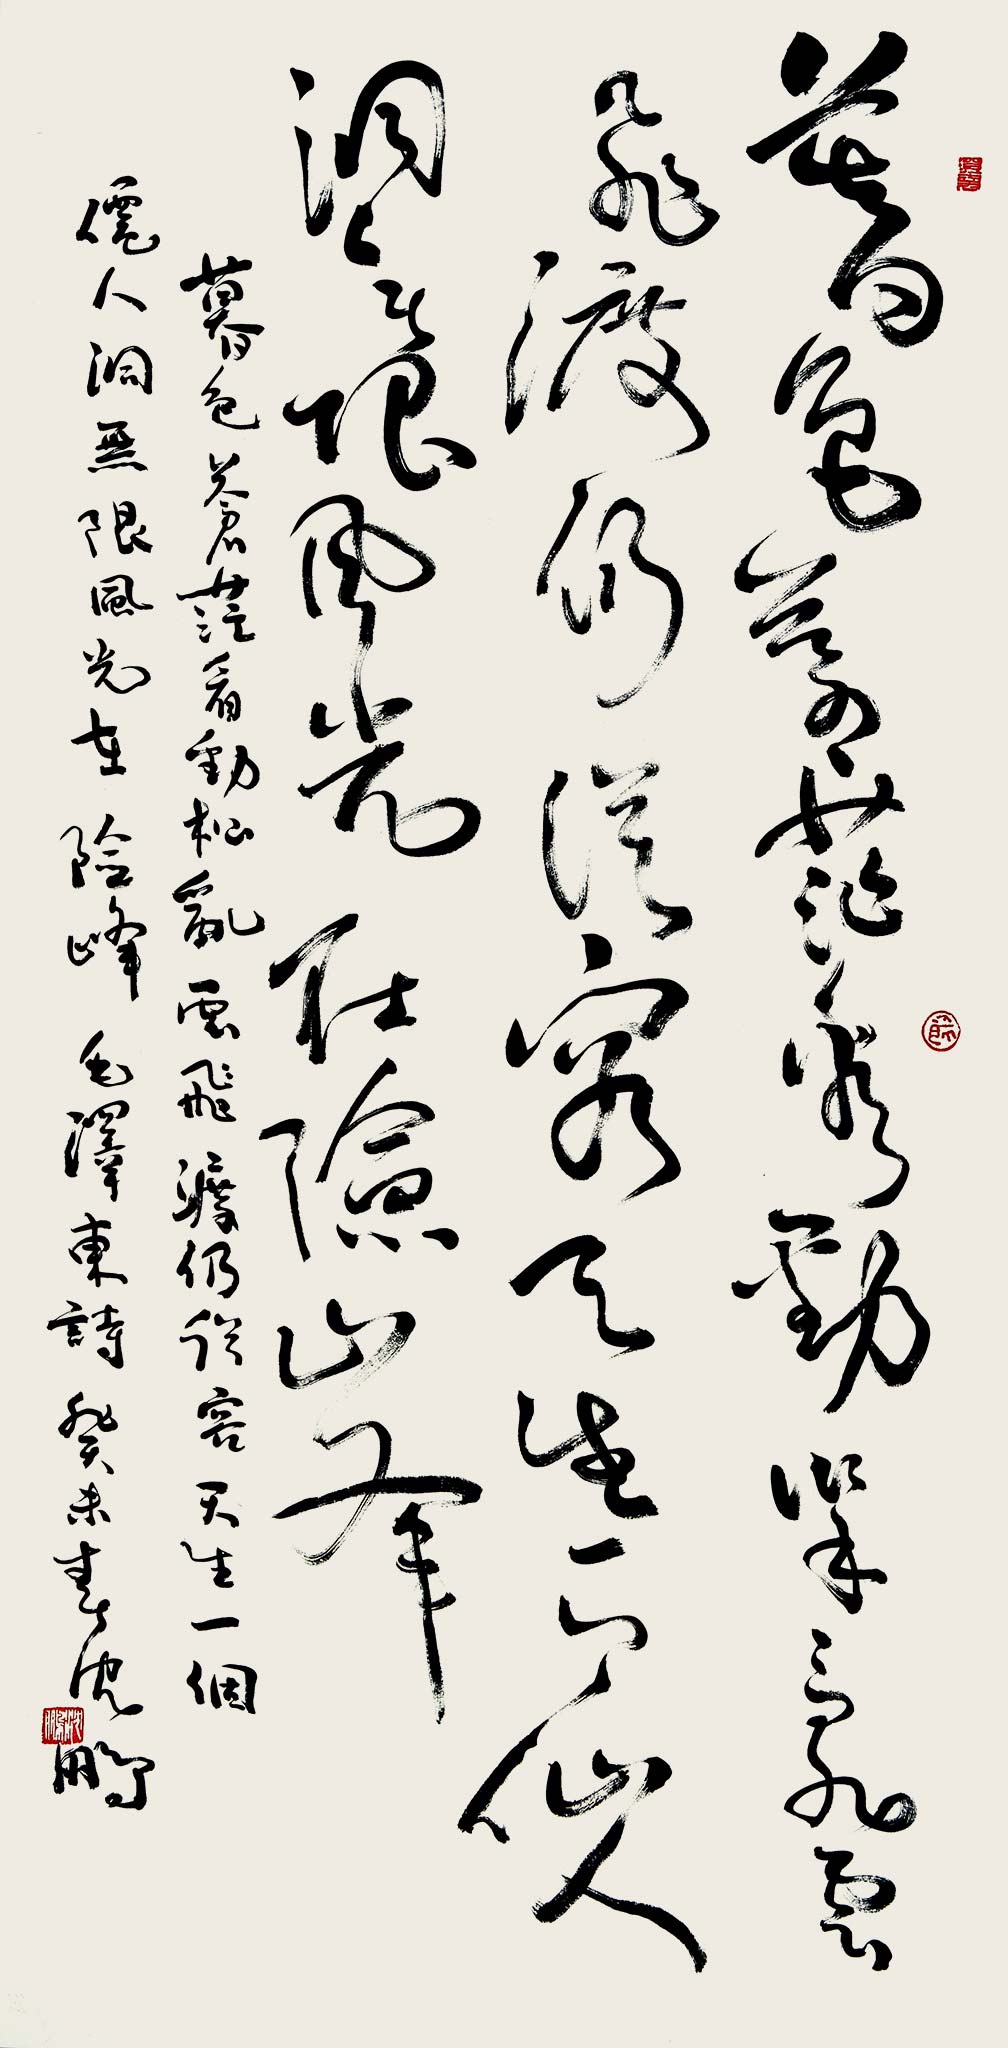 暮色蒼茫看勁松亂雲
飛渡仍從容天生一个仙人
洞無限風光在險峯
暮色蒼茫看勁松亂雲飛渡仍從容天生一個
僊人洞無限風光在險峰 毛澤東詩 癸未春沈鵬